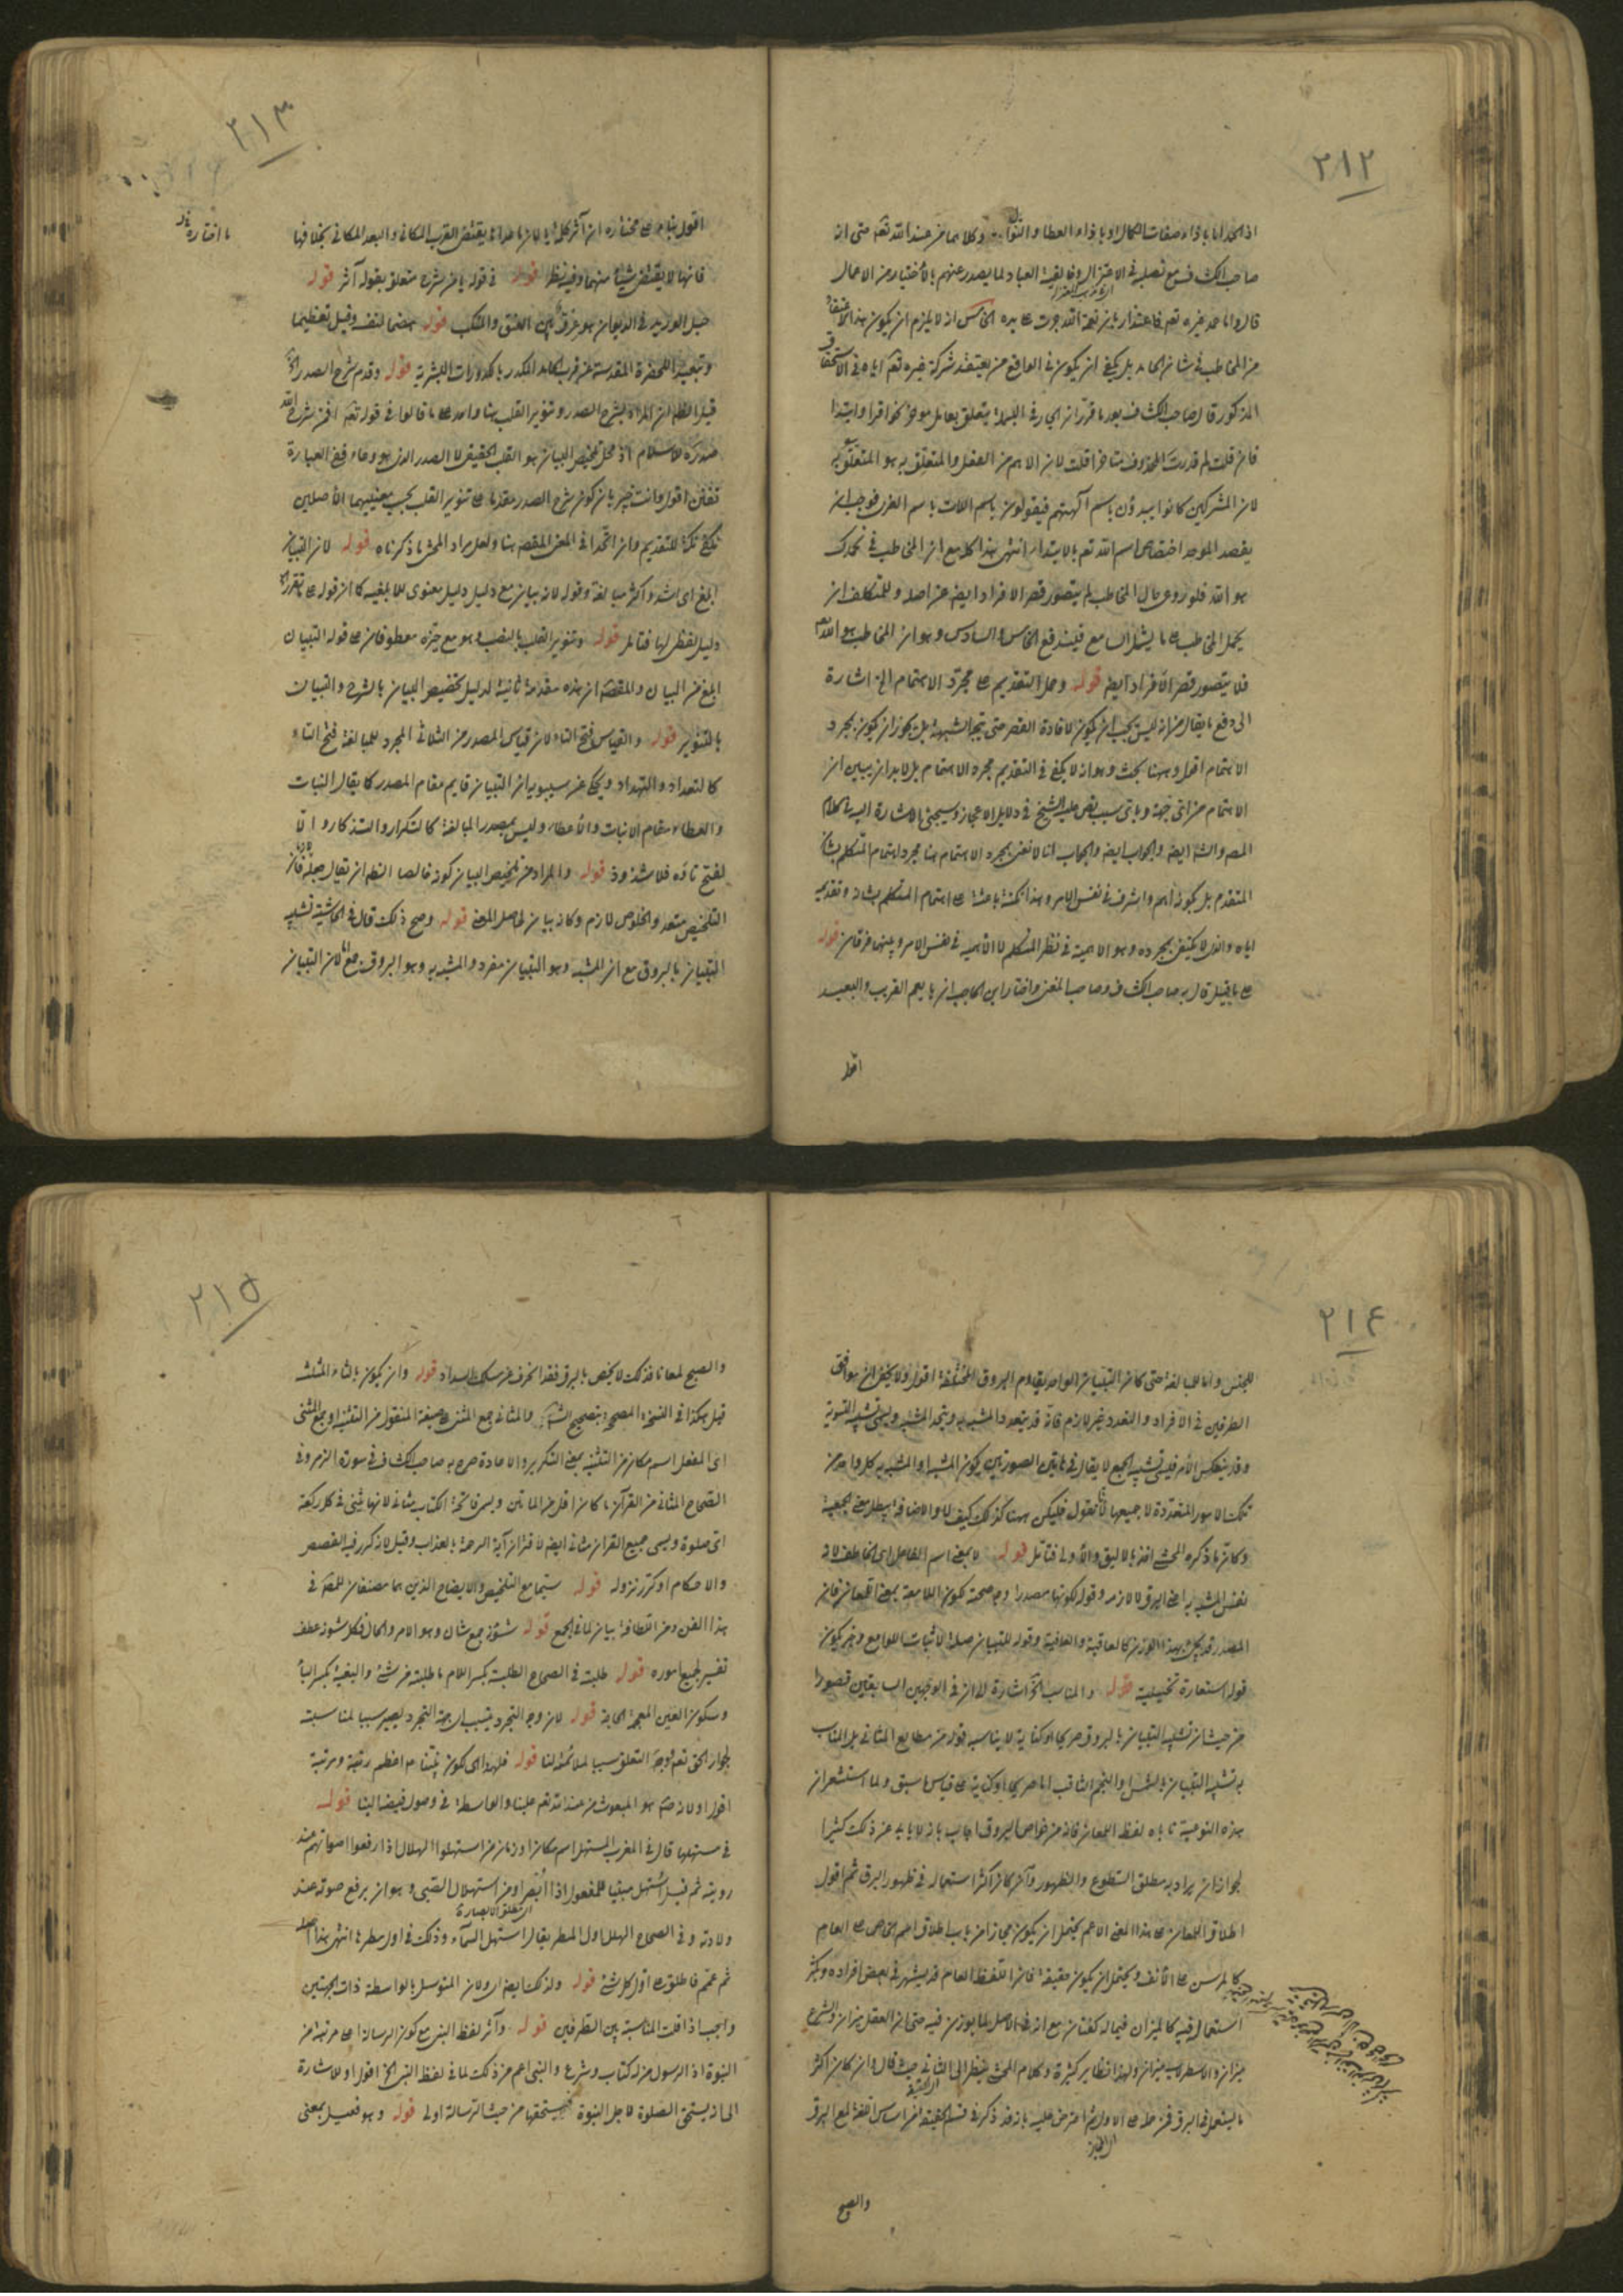 ٢١٢
اذ المحمد اما بازاء صفات الكمال او بازاء العطا والنوال وكلاهما من عند الله تعالى حتى ان
صاحب الكشاف مع تصلبه في الاعتزال
قال واما حمد غيره تعم فاعتداد بان نعمة الله جرت على يده الخامس انه لا يلزم ان يكون هذا الاعتقاد
من المخاطب في شان الحامد بل يكفي ان يكون في الواقع من يعتقد شركة غيره تعم اياه في الاستحقاق
المذكور قال صاحب الكشاف بعد ما قرر ان الجار في البسملة يتعلق بعامل مؤخر نحو اقرا وابتدا
فان قلت لم قدرت المحذوف متاخرا قلت لان الاهم من الفعل والمتعلق به هو المتعلق به
لان المشركين كانوا يبدؤن باسم آلهتهم فيقولون باسم اللات باسم العزى فوجب ان
يقصد الموحد اختصاص اسم الله تعم بالابتداء انتهى هذا كله مع ان المخاطب في نحمدك
هو الله فلو روعي حال المخاطب لم يتصور قصر الافراد ايضا عن اصله وللمتكلف ان
يحمل المخاطب على ما يشمل السامع فيندفع الخامس والسادس وهو ان المخاطب هو الله تعم
فلا يتصور قصر الافراد ايضا قوله وحمل التقديم على مجرد الاهتمام الخ اشارة
الى دفع ما يقال من انه ليس يجب ان يكون لافادة القصر حتى يتجه الشبهة بل يجوز ان يكون لمجرد
الاهتمام اقول وههنا بحث وهو انه لا يكفي في التقديم مجرد الاهتمام بل لابد ان يبين ان
الاهتمام من اي جهة وباي سبب نص عليه الشيخ في دلايل الاعجاز وسيجئ الاشارة اليه في كلام
المص والشه ايضا والجواب ايضا والجواب انا لا نعنى بمجرد الاهتمام هنا مجرد اهتمام المتكلم بشان
المتقدم بل كونه اهم واشرف في نفس الامر وهذا نكتة باعثة على اهتمام المتكلم بشانه وتقديمه
اياه والذي لا يكتفى بمجرده وهو الاهمية في نظر المتكلم لا الاهمية في نفس الامر وبينهما فرقان قوله
على ما قيل قال به صاحب الكشاف وصاحب المغني واختار ابن الحاجب ان يا يعم القريب والبعيد
اقول
٢١٣
ما اختاره
اقول بناء على مختاره ان آثر كلمة يا لان ما عداه يقتضي القرب المكاني والبعد المكاني بخلافها
فانها لا يقتضي شيئا منهما وفيه نظر قوله في قوله يا من شرح متعلق بقوله آثر قوله
حبل الوريد في الديوان هو عرق بين العنق والمنكب قوله هضما لنفسه وقيل تعظيما
وتبعيدا للحضرة المقدسة عن قرب الحامد المكدر بالكدورات البشرية قوله وقدم شرح الصدر الخ
قيل الظاهر ان المراد بشرح الصدر وتنوير القلب هنا واحد على ما قالوا في قوله تعم افمن شرح الله
صدره للاسلام اذ محل تلخيص البيان هو القلب الحقيقي لا الصدر الذي هو وعاء ففي العبارة
تفنن اقول وانت خبير بان كون شرح الصدر مقدما على تنوير القلب بحسب معنييهما الاصليين
يكفي نكتة للتقديم وان اتحدا في المعنى المقصود هنا ولعل مراد المحشي ما ذكرناه قوله لان التبيان
ابلغ اى اشد واكثر مبالغة وقوله لانه بيان مع دليل دليل معنوي للابلغية كما ان قوله على
دليل لفظي لها فتامل قوله وتنوير القلب بالنصب وهو مع خبره معطوفان على قوله التبيان
ابلغ من البيان والمقصود ان هذه مقدمة ثانية لدليل تخصيص البيان بالشرح والتبيان
بالتنوير قوله والقياس فتح التاء لان قياس المصدر من الثلاثي المجرد للمبالغة فتح التاء
كالتعداد والتهداد ويحكى عن سيبويه ان التبيان قايم مقام المصدر كما يقال النبات
والعطاء مقام الانبات والاعطاء وليس بمصدر المبالغة كالتكرار والتذكار والا
لفتح تاؤه فلا شذوذ قوله والمراد من تلخيص البيان كونه خالصا الظاهر ان يقال جعله فان
التلخيص متعد والخلوص لازم وكانه بيان لحاصل المعنى قوله وصح ذلك قال في الحاشية تشبيه
التبيان بالبروق مع ان المشبه وهو التبيان مفرد والمشبه به وهو البروق جمع لان التبيان
٢١٤
للجنس واما للمبالغة حتى كان التبيان الواحد يقاوم البروق المختلفة اقول ولا يخفى ان توافق
الطرفين في الافراد والتعدد غير لازم فانه قد يتعدد المشبه به ويتحد المشبه ويسمى تشبيه التسوية
وقد ينعكس الامر فيسمى تشبيه الجمع لا يقال في هاتين الصورتين يكون المشبه او المشبه به كل واحد من
تلك الامور المتعددة لا جميعها لانا نقول فليكن ههنا كذلك كيف لا والاضافة يبطل معنى الجمعية
وكان ما ذكره المحشي اخذ بالاليق والاولى فتامل قوله لا بمعنى اسم الفاعل اى الخاطف لانه
نفس المشبه به اعنى البرق لا لازمه وقوله لكونها مصدرا وجه صحة كون اللامعة بمعنى اللمعان فان
المصدر قد يجئ بهذا الوزن كالعاقبة والعافية وقوله للتبيان صلة لاثبات اللوامع وخبر يكون
قوله استعارة تخييلية قوله والمناسب الخ اشارة الى ان في الوجهين السابقين قصورا
من حيث ان تشبيه التبيان بالبروق صريحا او كناية لا يناسبه قوله من مطالع المثاني بل المناسب
به تشبيه التبيان بالشمس او النجم الثاقب اما صريحا او كناية على قياس ما سبق ولما استشعر ان
هذه التوجيه تاباه لفظ اللمعان فانه من خواص البروق اجاب بانه لا ياباه عن ذلك كثيرا
لجواز ان يراد به مطلق السطوع والظهور وآخر كان اكثر استعماله في ظهور البرق ثم اقول
اطلاق اللمعان على هذا المعنى الاعم يحتمل ان يكون مجازا من باب اطلاق اسم الخاص على العام
كالمرسن على الانف ويحتمل ان يكون حقيقة فان اللفظ العام قد يشتهر في بعض افراده ويكثر
استعماله فيه كالميزان فيما له كفتان مع انه في الاصل لما يوزن فيه حتى ان العقل ميزان والشرع
ميزان والاسطرلاب ميزان ولهذا نظاير كثيرة وكلام المحشي ينظر الى الثاني حيث قال وان كان اكثر
ما يستعمل في البرق فمن حمله على الاول ثم اعترض عليه بانه قد ذكر في قسم الحقيقة من اساس اللغة لمع البرق
والصبح
٢١٥
والصبح لمعانا فذلك لا يختص بالبرق فقد انحرف عن مسلك السداد قوله وان يكون بالثاء المثلثة
قيل هكذا في النسخة المصححة بتصحيح الشه والمثاني جمع المثنى على صيغة المنقول من التثنية او جمع المثنى
اى المفعل اسم مكان من التثنية بمعنى التكرير والاعادة صرح به صاحب الكشاف في سورة الزمر وفي
الصحاح المثاني من القرآن ما كان اقل من المأتين ويسمى فاتحة الكتاب مثاني لانها تثنى في كل ركعة
اى صلوة ويسمى جميع القرآن مثاني ايضا لاقتران آية الرحمة بالعذاب وقيل لانه كرر فيه القصص
والاحكام او كرر نزوله قوله سيما مع التلخيص والايضاح الذين هما مصنفان للمص في
هذا الفن ومن اللطافة بيان لما في الجمع قوله شئون جمع شان وهو الامر والحال فكل شئون عطف
تفسير لجميع اموره قوله طلبت في الصحاح الطلبة بكسر اللام ما طلبته من شئ والبغية بكسر الباء
وسكون الغين المعجمة الحاجة قوله لان وجه التجرد يتسبب اى جهة التجرد يصير سببا لمناسبته
لجوار الحق تعم ووجه التعلق سببا لملائمته لنا قوله فلهذا اى لكون نبينا عم اعظم رتبة ومرتبة
اقول او لانه صم هو المبعوث من عند الله تعم علينا والواسطة في وصول فيضه الينا قوله
في مستهلها قال في المغرب المستهل اسم مكان او زمان من استهلوا الهلال اذا رفعوا اصواتهم عند
رويته ثم قيل استهل مبنيا للمفعول اذا ابصر او من استهلال الصبي وهو ان يرفع صوته عند
ولادته وفي الصحاح الهلل اول المطر يقال استهل السماء وذلك في اول مطرها انتهى هذا اصله
ثم عمم فاطلق على اول كل شئ قوله ولذلك ايضا اى ولان المتوسل بالواسطة ذات الجهتين
واجب اذا قلت المناسبة بين الطرفين قوله وآثر لفظ النبي مع كون الرسالة اعلى مرتبة من
النبوة اذ الرسول من له كتاب وشرع والنبي اعم من ذلك لما في لفظ النبي الخ اقول او للاشارة
الى انه يستحق الصلوة لاجل النبوة فيستحقها من حيث الرسالة اولى قوله وهو فعيل بمعنى